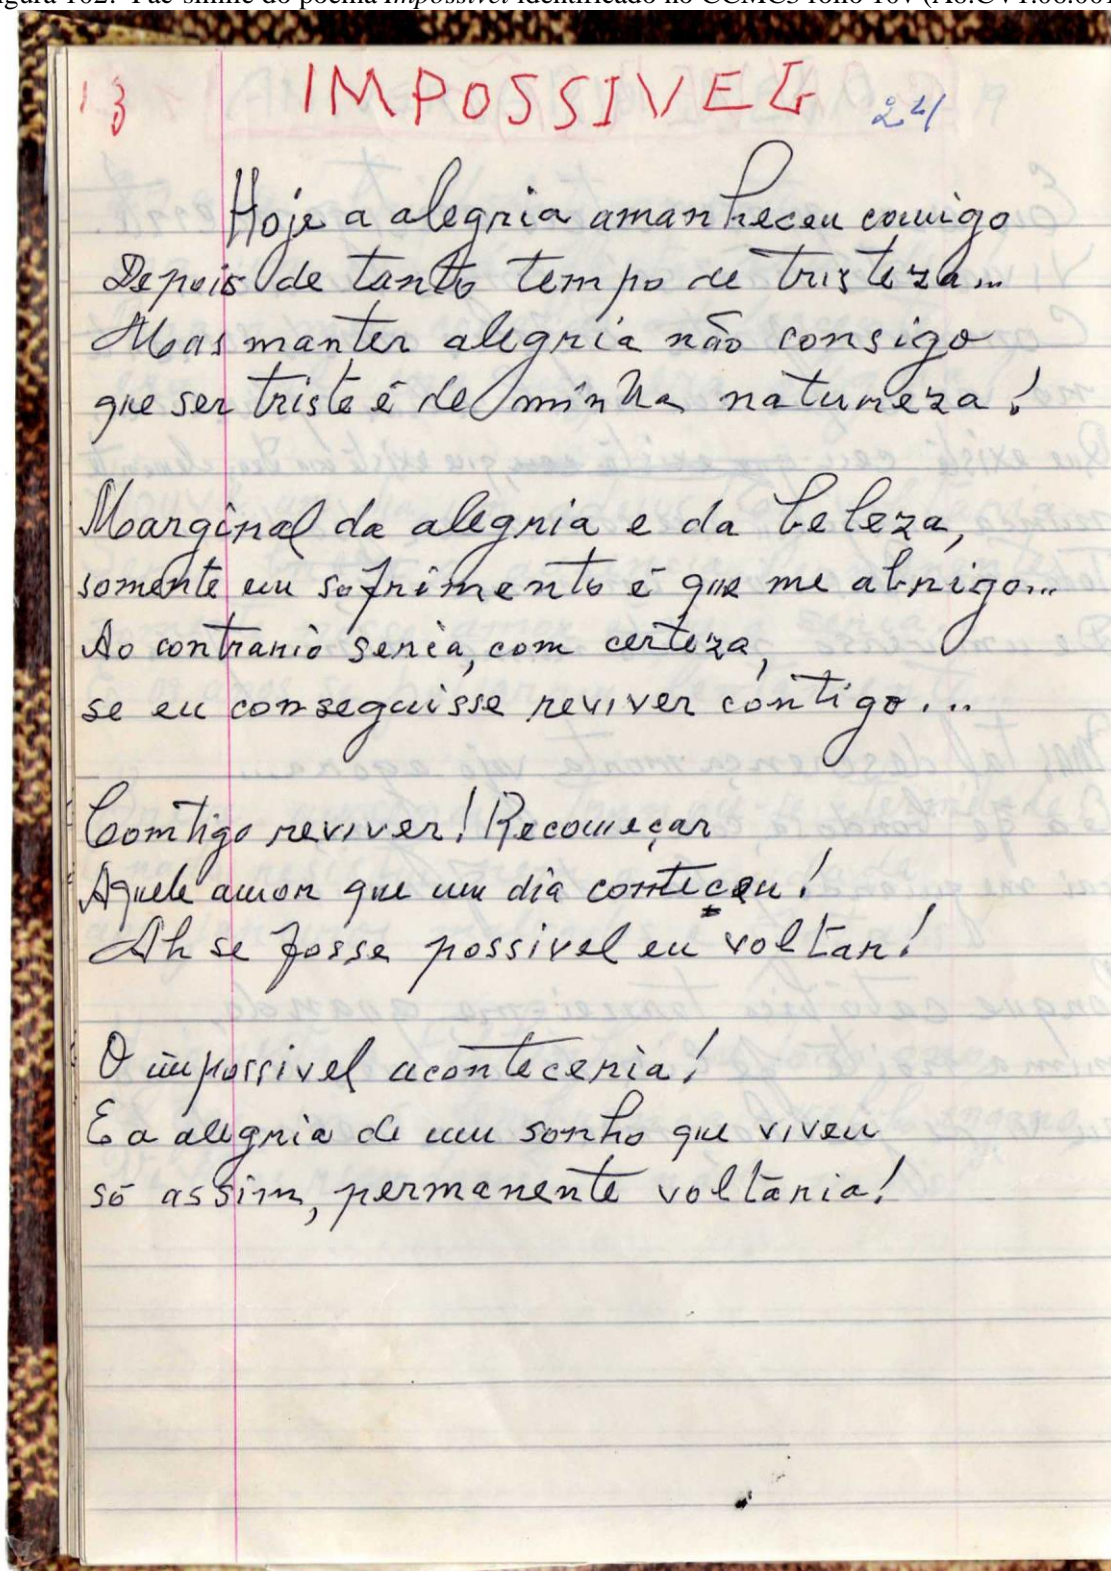 gura 102: Fac-símile do poema Impossível identificado no CCMC5 fólio 16v (Ao.CV1.06.001
13 IMPOSSIVEL 24
Hoje a alegria amanheceu comigo
Depois de tanto tempo de tristeza...
Mas manter alegria não consigo
que ser triste é de minha natureza!
Marginal da alegria e da beleza,
somente em sofrimento é que me abrigo...
Ao contrario seria, com certeza,
se eu conseguisse reviver contigo...
Comtigo reviver! Recomeçar
Aquele amor que um dia
Ah se fosse possivel eu voltar!
O impossivel aconteceria!
E a alegria de um sonho que viveu
só assim, permanente voltaria!